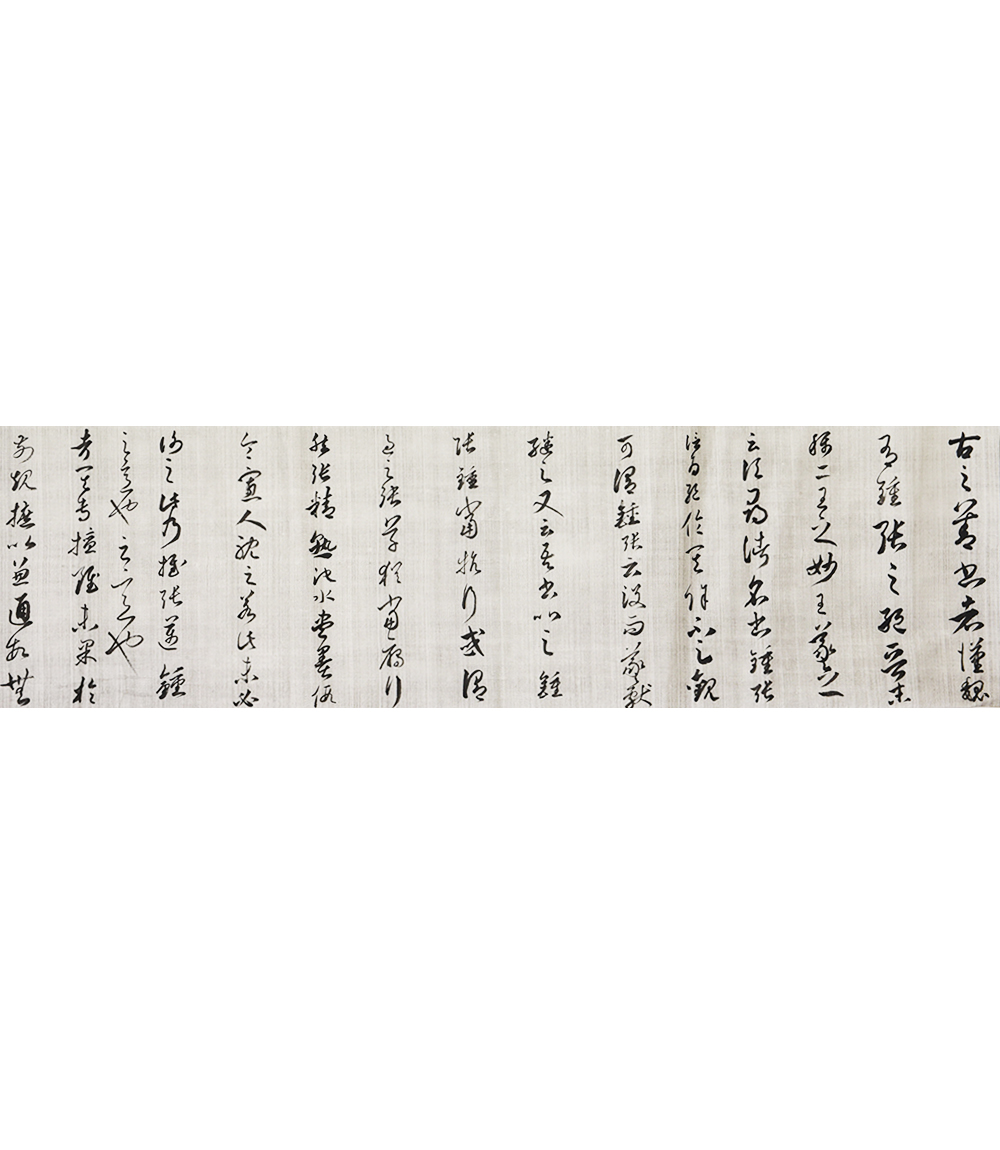 古之善書者漢魏
有鍾張之絕晉末
稱二王之妙王羲之
云頃尋諸名書鍾張
信為絕倫其餘不足觀
可謂鍾張云沒而羲獻
繼之又云吾書比之鍾
張鍾當抗行或謂
過之張草猶當雁行
然張精熟池水盡墨假
令寡人耽之若此未必
謝之此乃推張邁鍾
之意也之意也
考其專擅雖未果於
前規摭以兼通故無